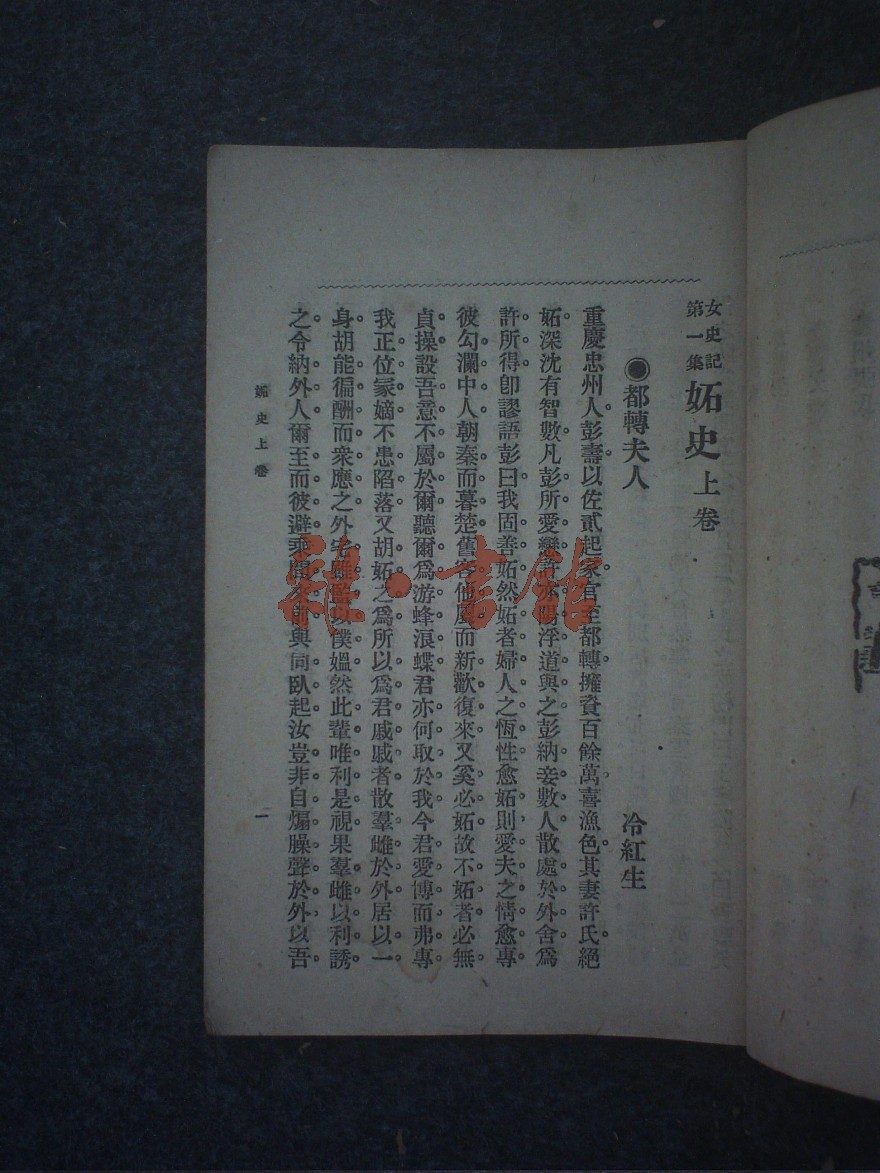 女史記
第一集
妬史上卷
◉都轉夫人
冷紅生
重慶忠州人彭壽以佐貳起家官至都轉擁貲百餘萬喜漁色其妻許氏絕
妬深沈有智數凡彭所愛戀許亦陽浮道與之彭納妾數人散處於外舍爲
許所得卽謬語彭曰我固善妬然妬者婦人之恆性愈妬則愛夫之情愈專
彼勾瀾中人朝秦而暮楚舊客他屬而新歡復來又奚必妬故不妬者必無
貞操設吾意不屬於爾聽爾爲游蜂浪蝶君亦何取於我今君愛博而弗專
我正位冢嫡不患陷落又胡妬之爲所以爲君戚戚者散羣雌於外居以一
身胡能徧酬而衆應之外宅雖監以僕媼然此輩唯利是視果羣雌以利誘
之令納外人爾至而彼避乘間又前與同臥起汝豈非自煽臊聲於外以吾
妬史上卷
一
雜·書館